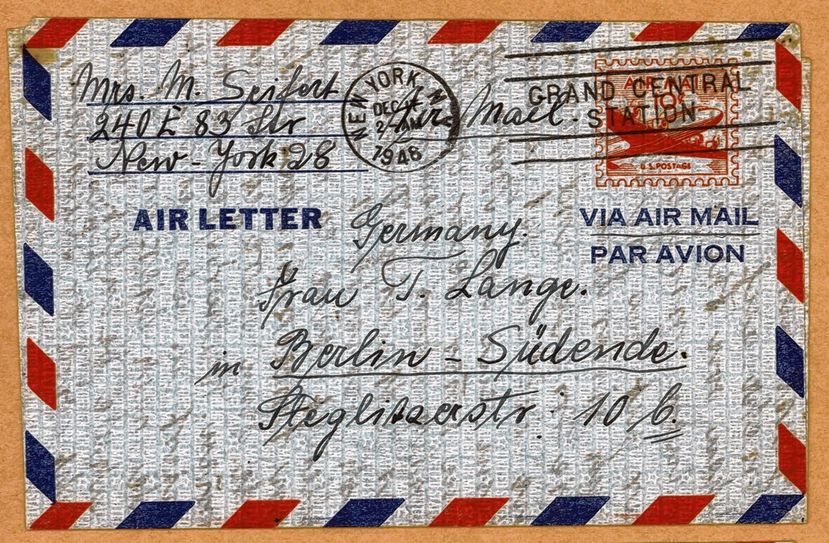 Mrs. M. Seifert
240 E 83 Str
New-York 28
Air Mail.
NEW YORK, N
DEC
AM
1948
GRAND CENTRAL
STATION
AIR
10¢
U.S. POSTAGE
AIR LETTER
VIA AIR MAIL
PAR AVION
Germany.
Frau T. Lange.
in Berlin-Südende.
Steglitzerstr. 10 b.